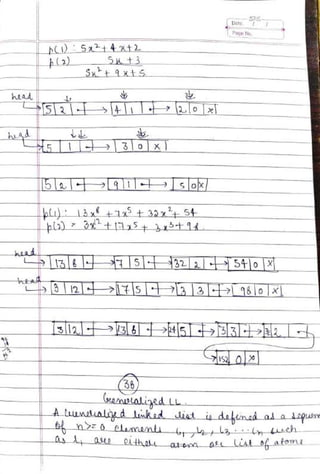 Date: / /
Page No.
p(1) : 5x² + 4x + 2
p(2) 5x + 3
5x² + 9x + 5
head
5 2 → 4 1 → 2 0 x
head
5 1 → 3 0 x
5 2 → 9 1 → 5 0 x
p(1) : 13x⁸ + 7x⁵ + 32x² + 54
p(2) = 3x¹² + 17x⁵ + 3x³ + 98
head
13 8 → 7 5 → 32 2 → 54 0 x
head
3 12 → 17 5 → 3 3 → 98 0 x
3 12 → 13 8 → 24 5 → 3 3 → 32 2
152 0 x
38
Generalized LL
A Generalized linked list is defined as a sequen
of n >= 0 elements l₁, l₂, l₃ ... ln such
as l₁ are either atom or list of atoms